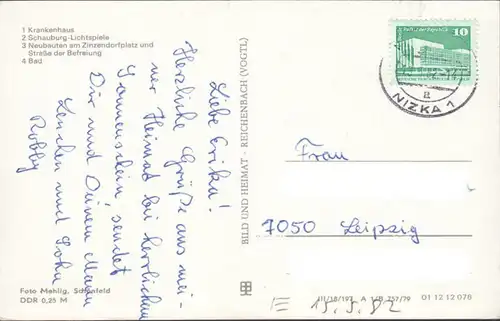 1 Krankenhaus
2 Schauburg-Lichtspiele
3 Neubauten am Zinzendorfplatz und
Straße der Befreiung
4 Bad
Liebe Erika!
Herzliche Grüße aus mei-
ner Heimat bei herrlichem
Sonnenschein, sendet
Dir und Deinem Mann
Lenchen und Sohn
Robby
Foto Mehlig, Schönfeld
DDR 0,25 M
BILD UND HEIMAT · REICHENBACH (VOGTL)
10
a
NIZKA 1
Frau
7050 Leipzig
III/18/197 A 1/B 757/79 01 12 12 078
E 15.5.82